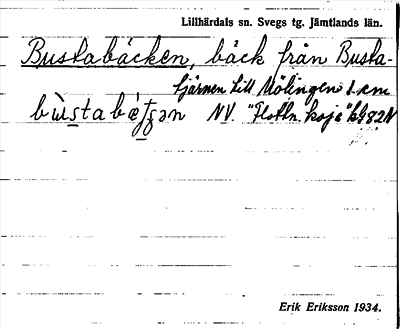 Lillhärdals sn. Svegs tg. Jämtlands län.
Bustabäcken, bäck från Busta-
tjärnen till Mölingen 1 km
NV. "Flottn. koja" bl 82 N
Erik Eriksson 1934.